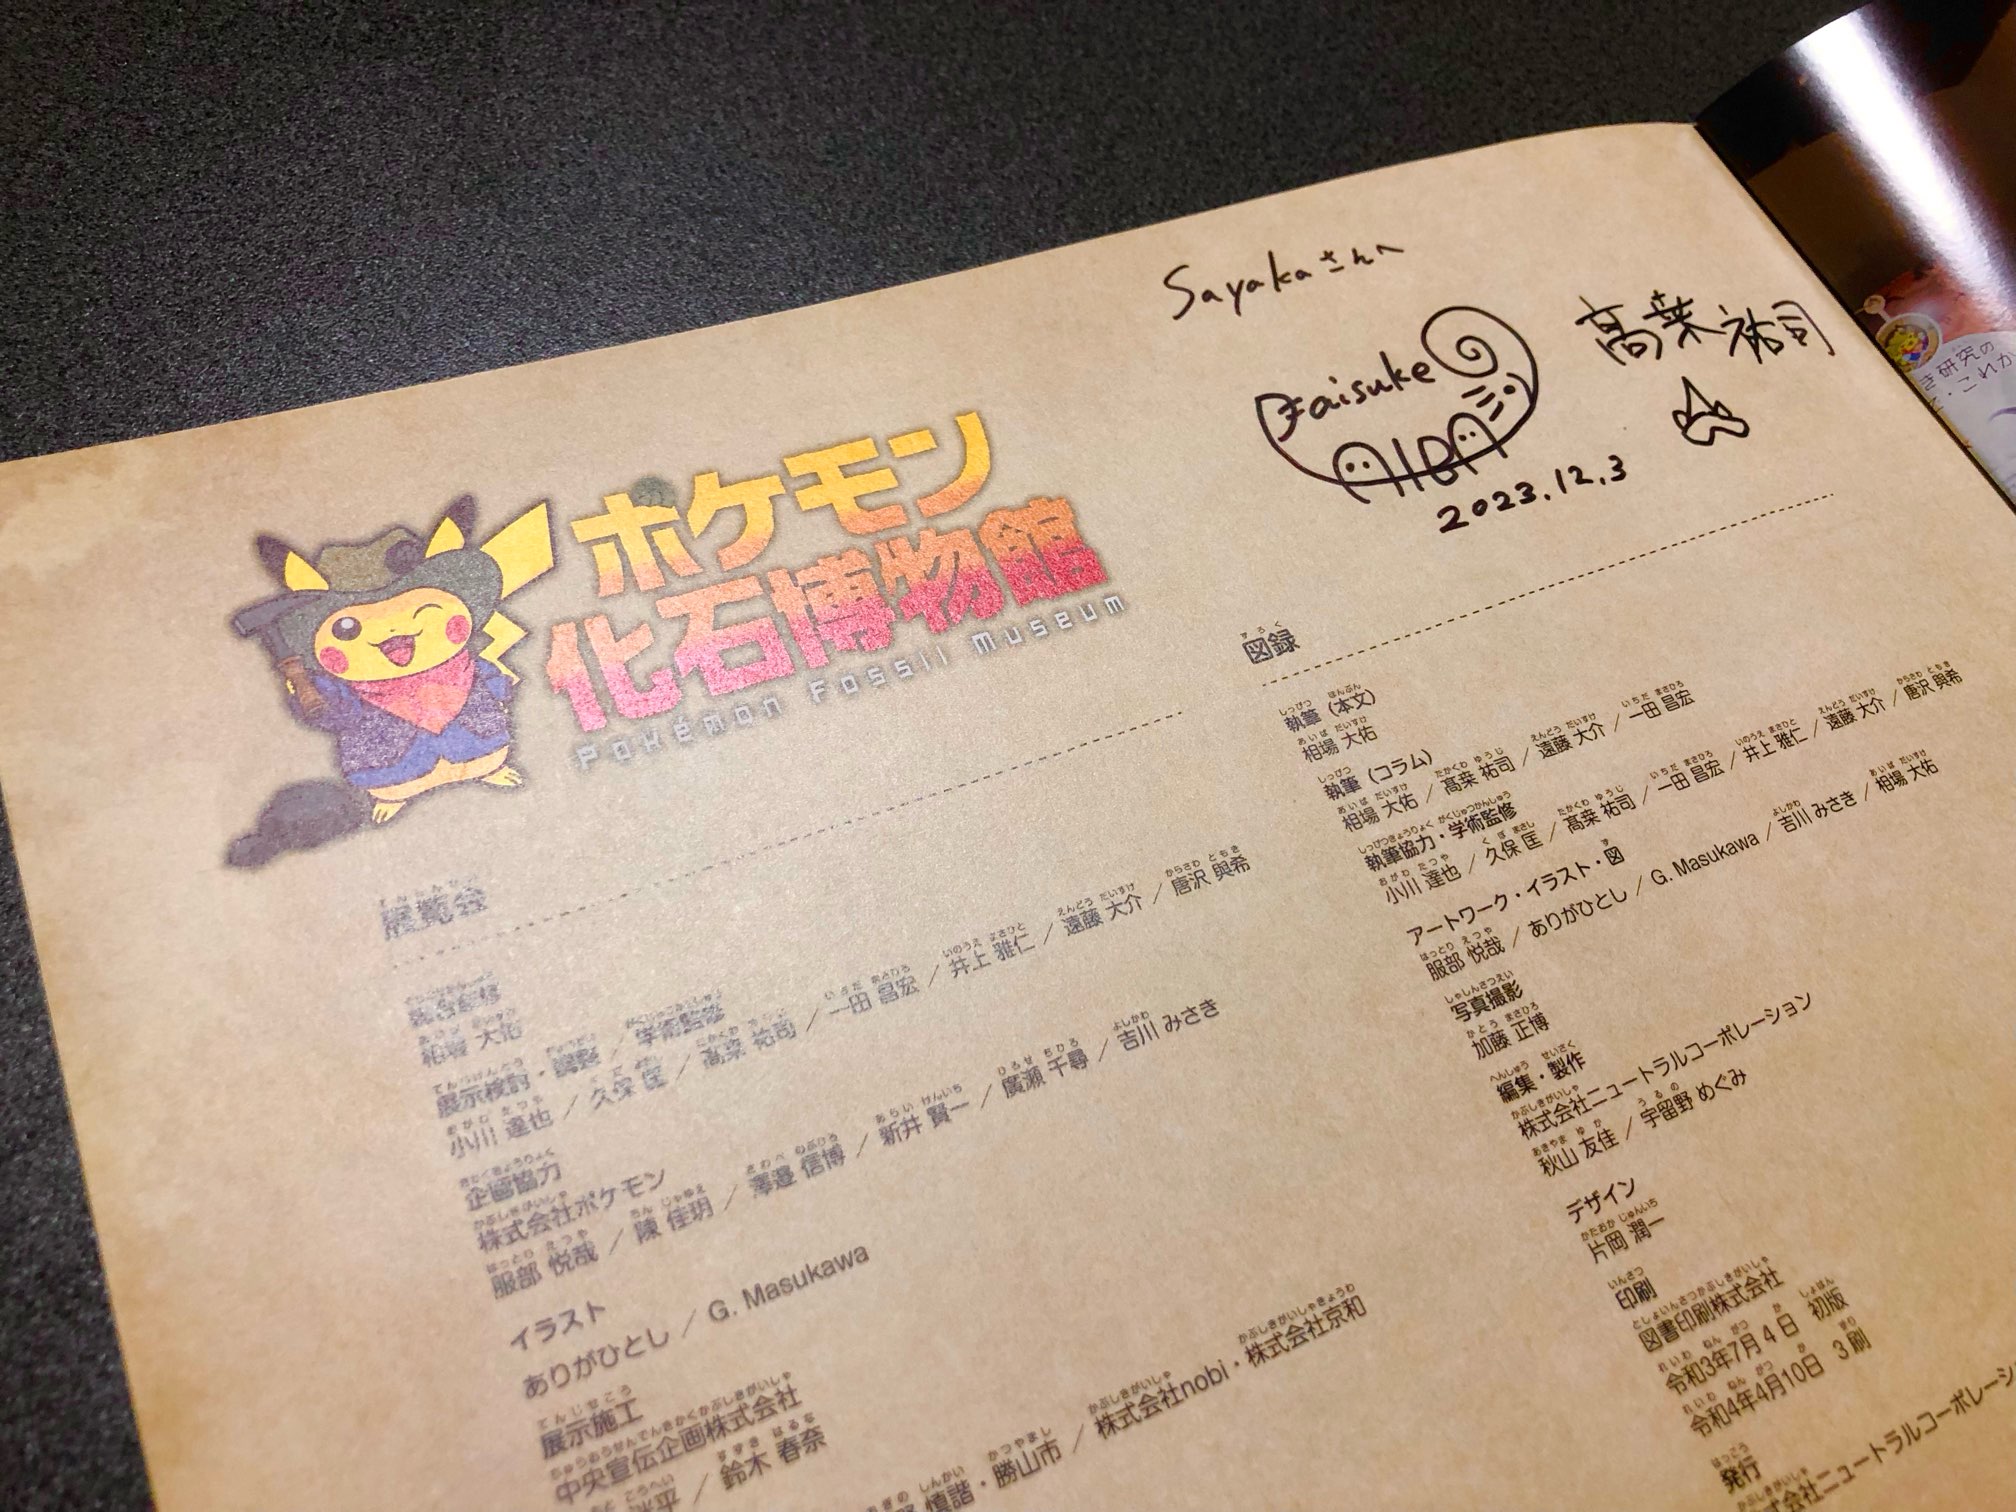 Sayakaさんへ
Daisuke
AIBA
髙桒祐司
2023.12.3
ポケモン
化石博物館
Pokémon Fossil Museum
展覧会
総合監修
相場 大佑
展示検討・調整 / 学術監修
小川 達也 / 久保 匡 / 髙桒 祐司 / 一田 昌宏 / 井上 雅仁 / 遠藤 大介 / 唐沢 與希
企画協力
株式会社ポケモン
服部 悦哉 / 陳 佳玥 / 澤邉 信博 / 新井 賢一 / 廣瀬 千尋 / 吉川 みさき
イラスト
ありがひとし / G. Masukawa
展示施工
中央宣伝企画株式会社
洋平 / 鈴木 春奈
慎諧・勝山市 / 株式会社nobi・株式会社京和
図録
執筆（本文）
相場 大佑
執筆（コラム）
相場 大佑 / 髙桒 祐司 / 遠藤 大介 / 一田 昌宏
執筆協力・学術監修
小川 達也 / 久保 匡 / 髙桒 祐司 / 一田 昌宏 / 井上 雅仁 / 遠藤 大介 / 唐沢 與希
アートワーク・イラスト・図
服部 悦哉 / ありがひとし / G. Masukawa / 吉川 みさき / 相場 大佑
写真撮影
加藤 正博
編集・製作
株式会社ニュートラルコーポレーション
秋山 友佳 / 宇留野 めぐみ
デザイン
片岡 潤一
印刷
図書印刷株式会社
令和3年7月4日 初版
令和4年4月10日 3刷
発行
株式会社ニュートラルコーポレーシ
き研究の
これか